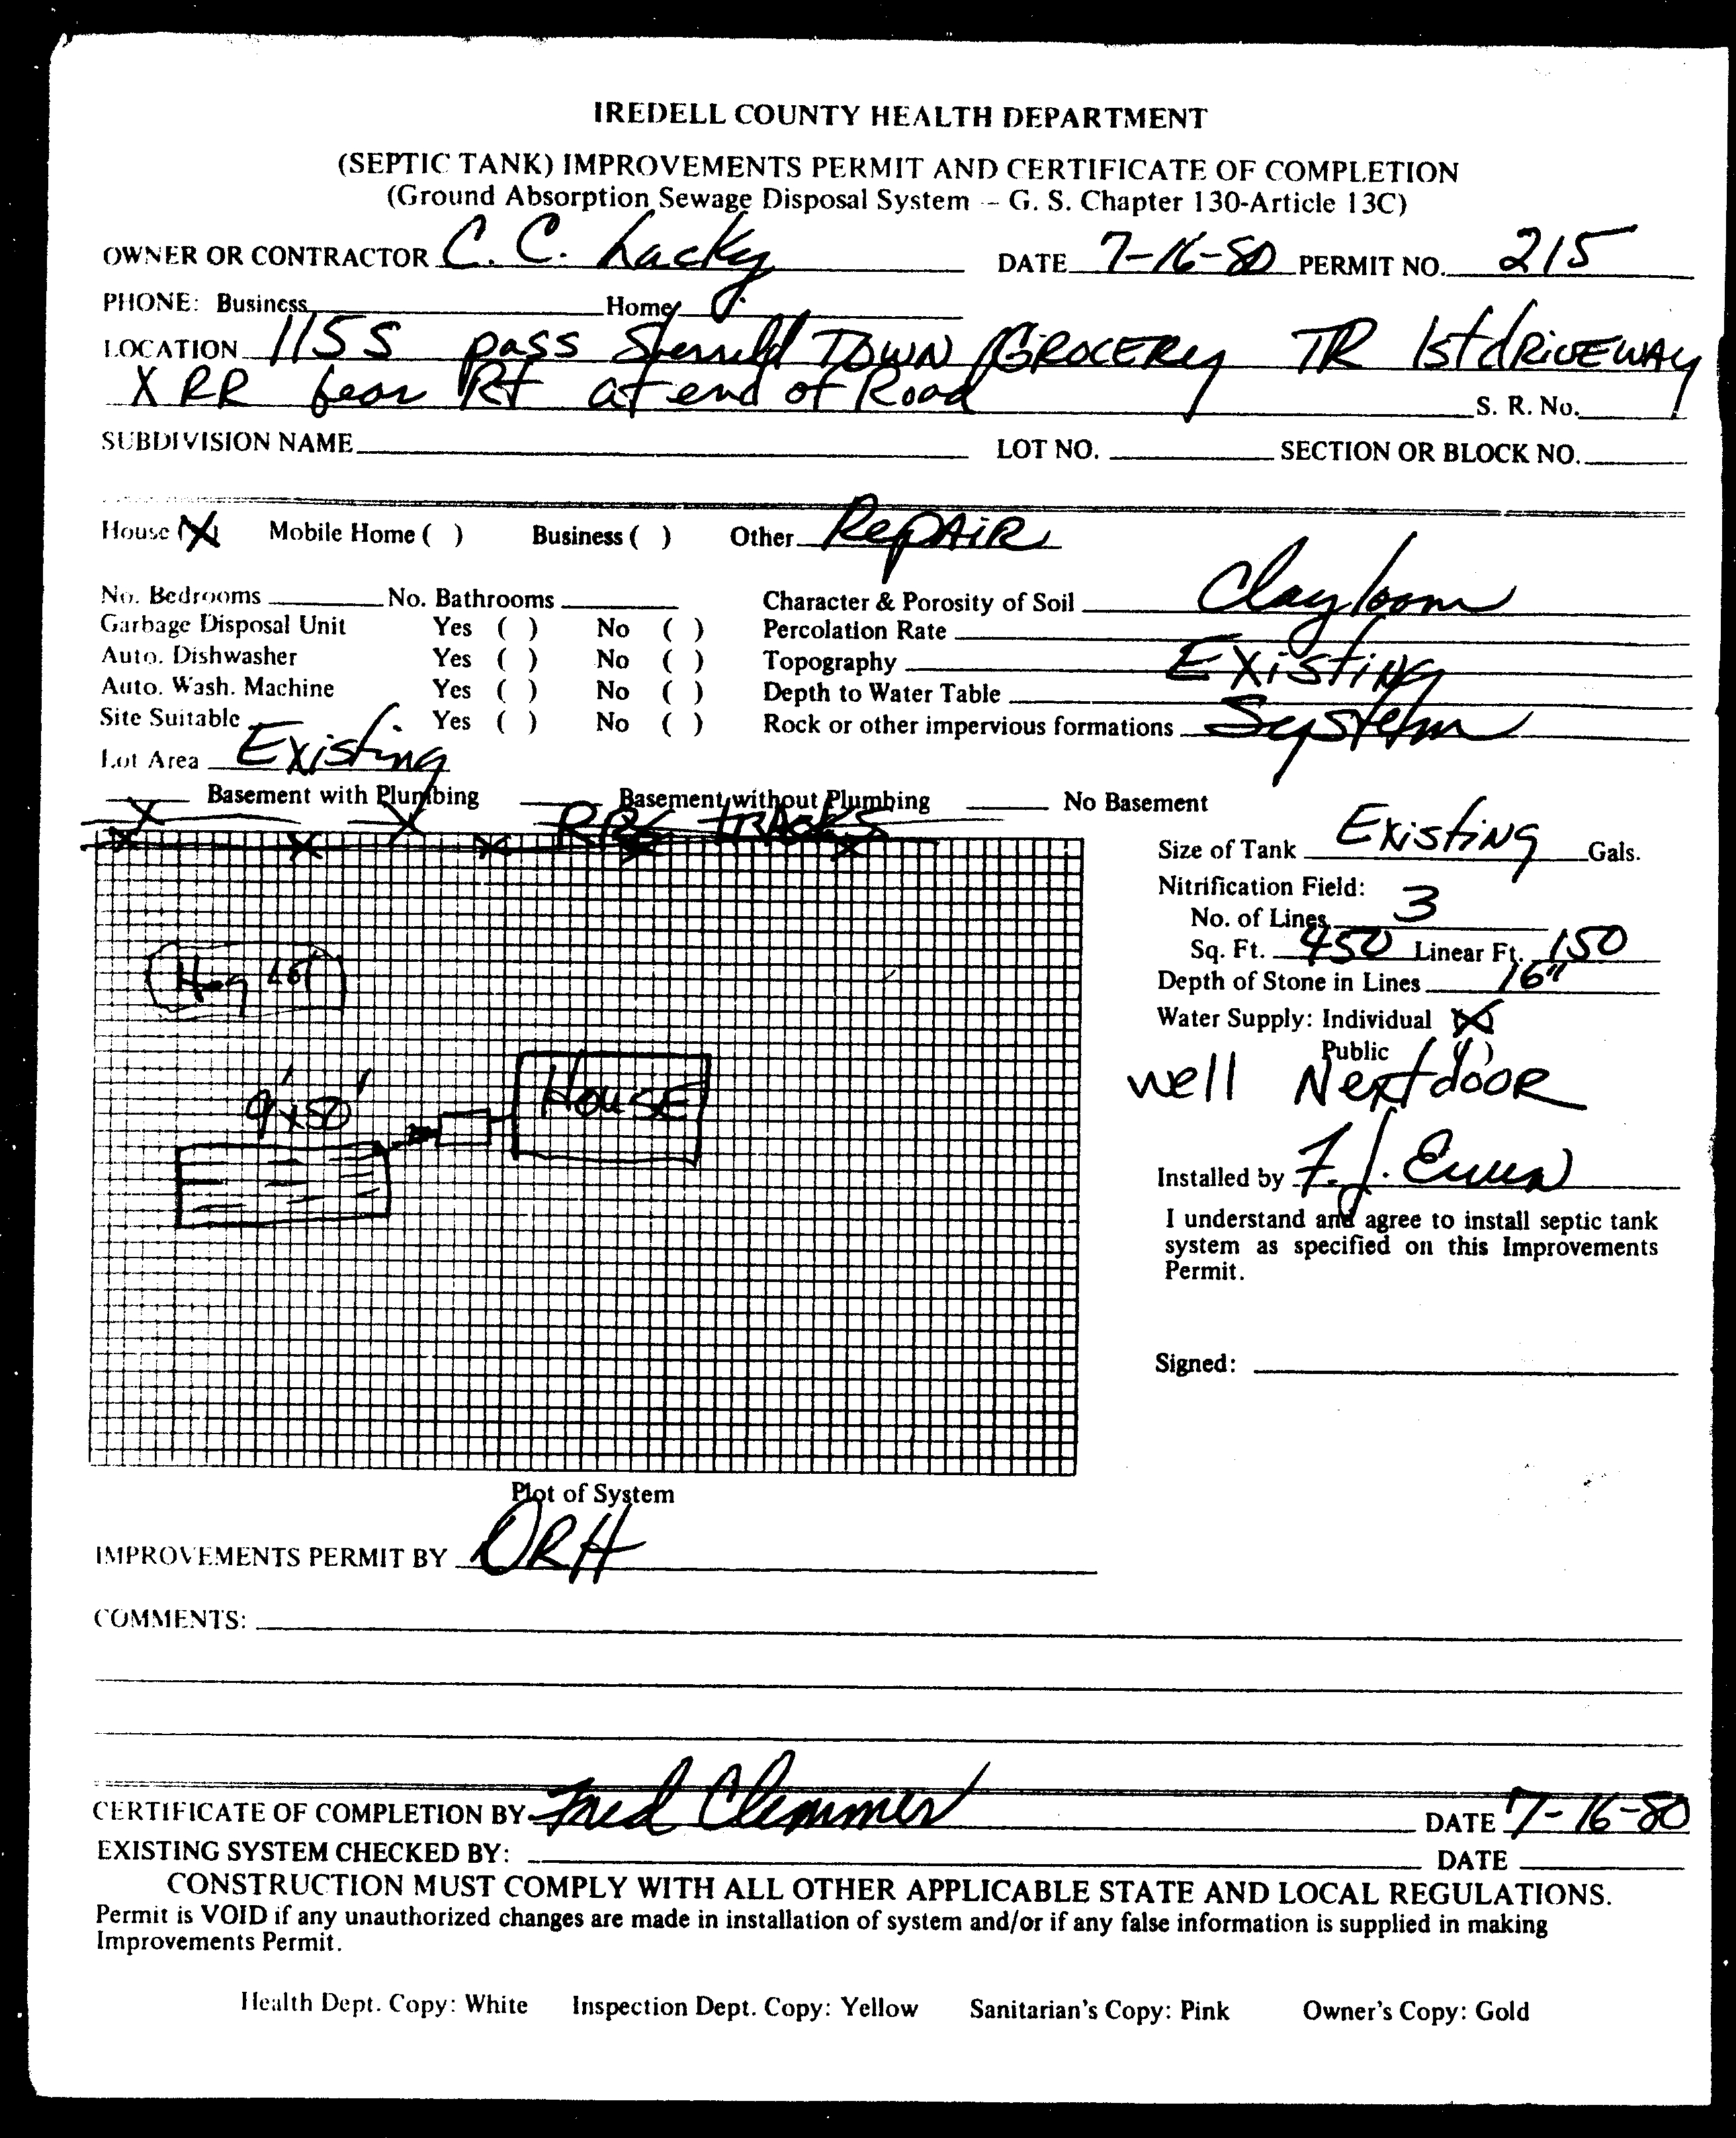 IREDELL COUNTY HEALTH DEPARTMENT
(SEPTIC TANK) IMPROVEMENTS PERMIT AND CERTIFICATE OF COMPLETION
(Ground Absorption Sewage Disposal System -- G. S. Chapter 130-Article 13C)
OWNER OR CONTRACTOR C. C. Lacky DATE 7-16-80 PERMIT NO. 215
PHONE: Business Home
LOCATION 115 S pass TOWN GROCERY TR 1st dRiVEWAY
X RR bear Rt at end of Road S. R. No.
SUBDIVISION NAME LOT NO. SECTION OR BLOCK NO.
House (X) Mobile Home ( ) Business ( ) Other RepAiR
No. Bedrooms No. Bathrooms Character & Porosity of Soil Clay loam
Garbage Disposal Unit Yes ( ) No ( ) Percolation Rate
Auto. Dishwasher Yes ( ) No ( ) Topography EXisting
Auto. Wash. Machine Yes ( ) No ( ) Depth to Water Table
Site Suitable Yes ( ) No ( ) Rock or other impervious formations System
Lot Area Existing
Basement with Plumbing Basement without Plumbing No Basement
RRS tRACKS
Size of Tank Existing Gals.
Nitrification Field:
No. of Lines 3
Sq. Ft. 450 Linear Ft. 150
Depth of Stone in Lines 16"
Water Supply: Individual (X)
Public ( )
well Next dooR
Hog Lot
House
9'x50'
Installed by F. J.
I understand and agree to install septic tank
system as specified on this Improvements
Permit.
Signed:
Plot of System
IMPROVEMENTS PERMIT BY ORH
COMMENTS:
CERTIFICATE OF COMPLETION BY Fred Clemmer DATE 7-16-80
EXISTING SYSTEM CHECKED BY: DATE
CONSTRUCTION MUST COMPLY WITH ALL OTHER APPLICABLE STATE AND LOCAL REGULATIONS.
Permit is VOID if any unauthorized changes are made in installation of system and/or if any false information is supplied in making
Improvements Permit.
Health Dept. Copy: White Inspection Dept. Copy: Yellow Sanitarian's Copy: Pink Owner's Copy: Gold